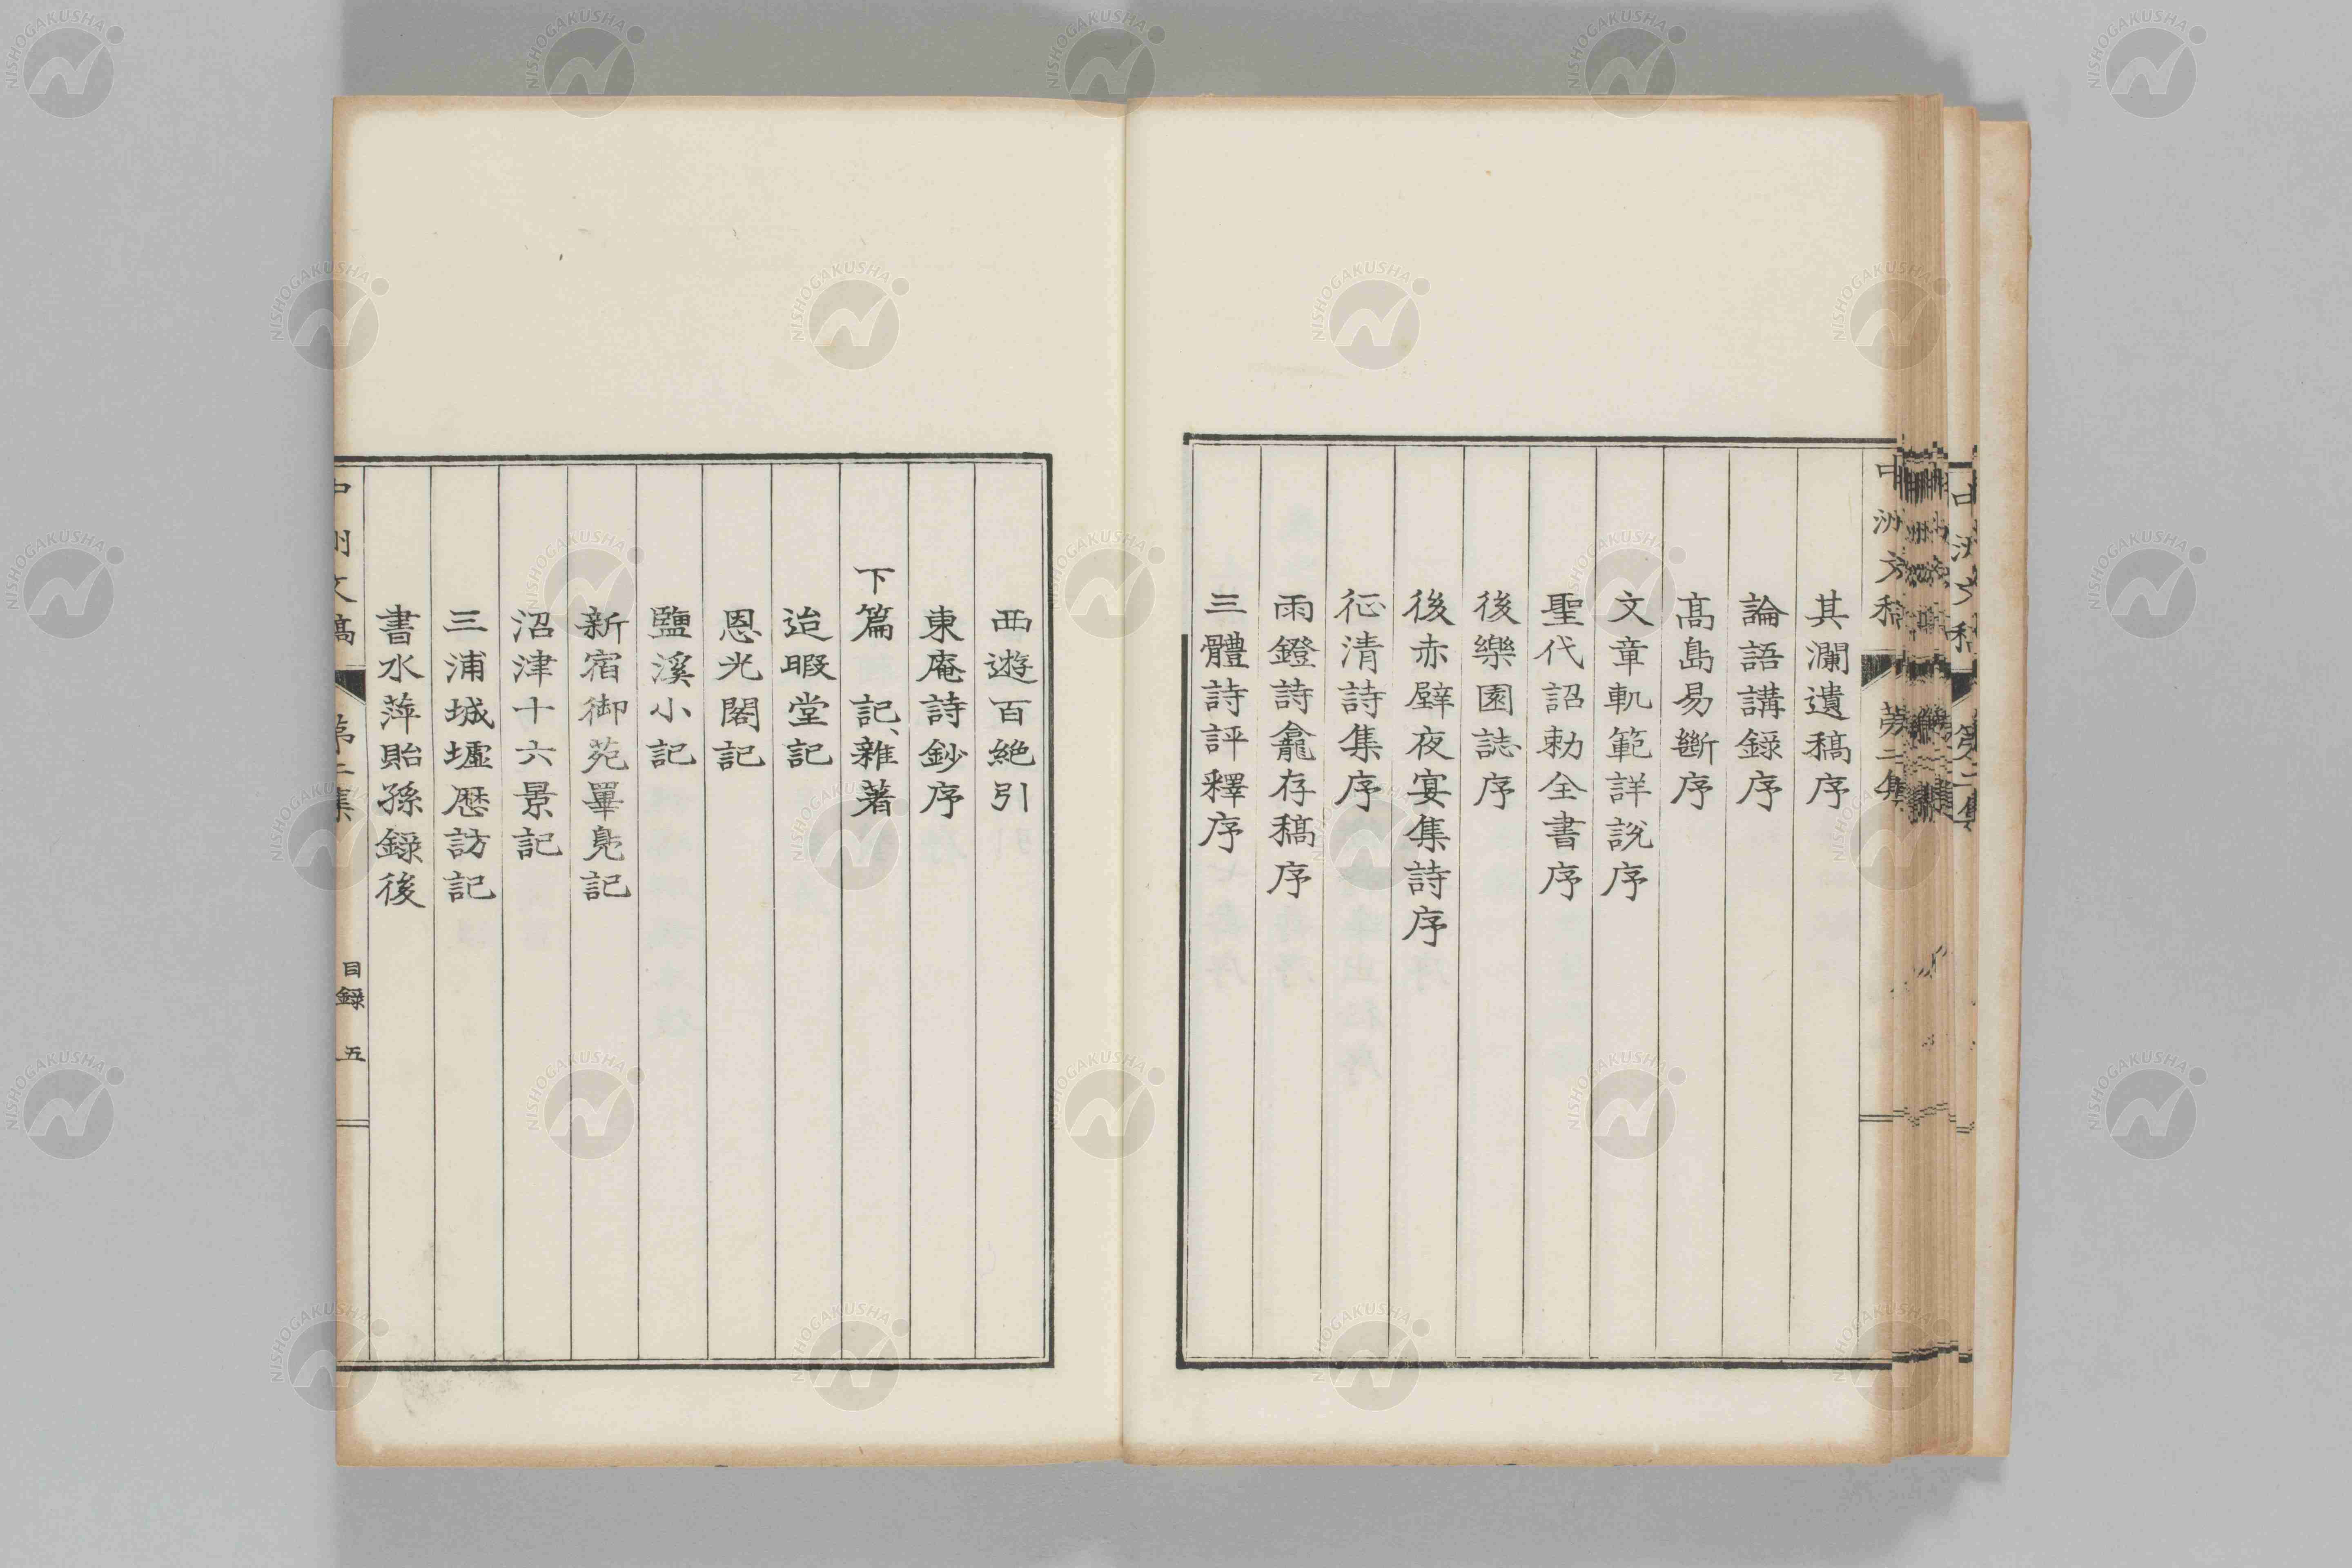 其瀾遺稿序
論語講録序
髙島易斷序
文章軌範詳説序
聖代詔勅全書序
後樂園誌序
後赤壁夜宴集詩序
征清詩集序
雨鐙詩龕存稿序
三體詩評釋序
西遊百絶引
東庵詩鈔序
下篇 記、雜著
迨暇堂記
恩光閣記
鹽溪小記
新宿御苑畢鳧記
沼津十六景記
三浦城墟歴訪記
書水萍貽孫録後
中洲文稿 第二集 目録 五
NISHOGAKUSHA